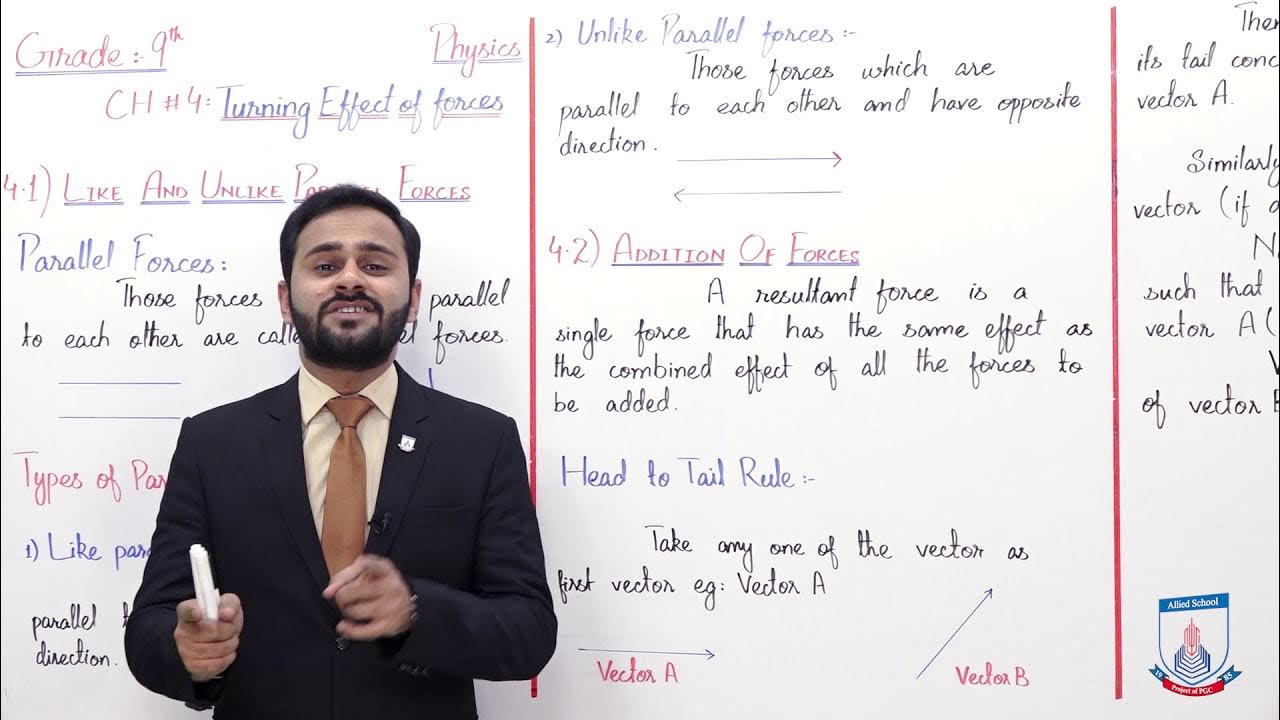 Grade:- 9th Physics
CH # 4: Turning Effect of forces
4.1) LIKE AND UNLIKE FORCES
Parallel Forces:
Those forces parallel
to each other are forces.
Types of
1) Like
parallel
direction.
2) Unlike Parallel forces:-
Those forces which are
parallel to each other and have opposite
direction.
4.2) ADDITION OF FORCES
A resultant force is a
single force that has the same effect as
the combined effect of all the forces to
be added.
Head to Tail Rule:-
Take any one of the vector as
first vector eg: Vector A
Vector A
Vector B
its tail
vector A.
Similarly
vector (if
such that
vector A (
of vector
Allied School
19 85
Project of PGC